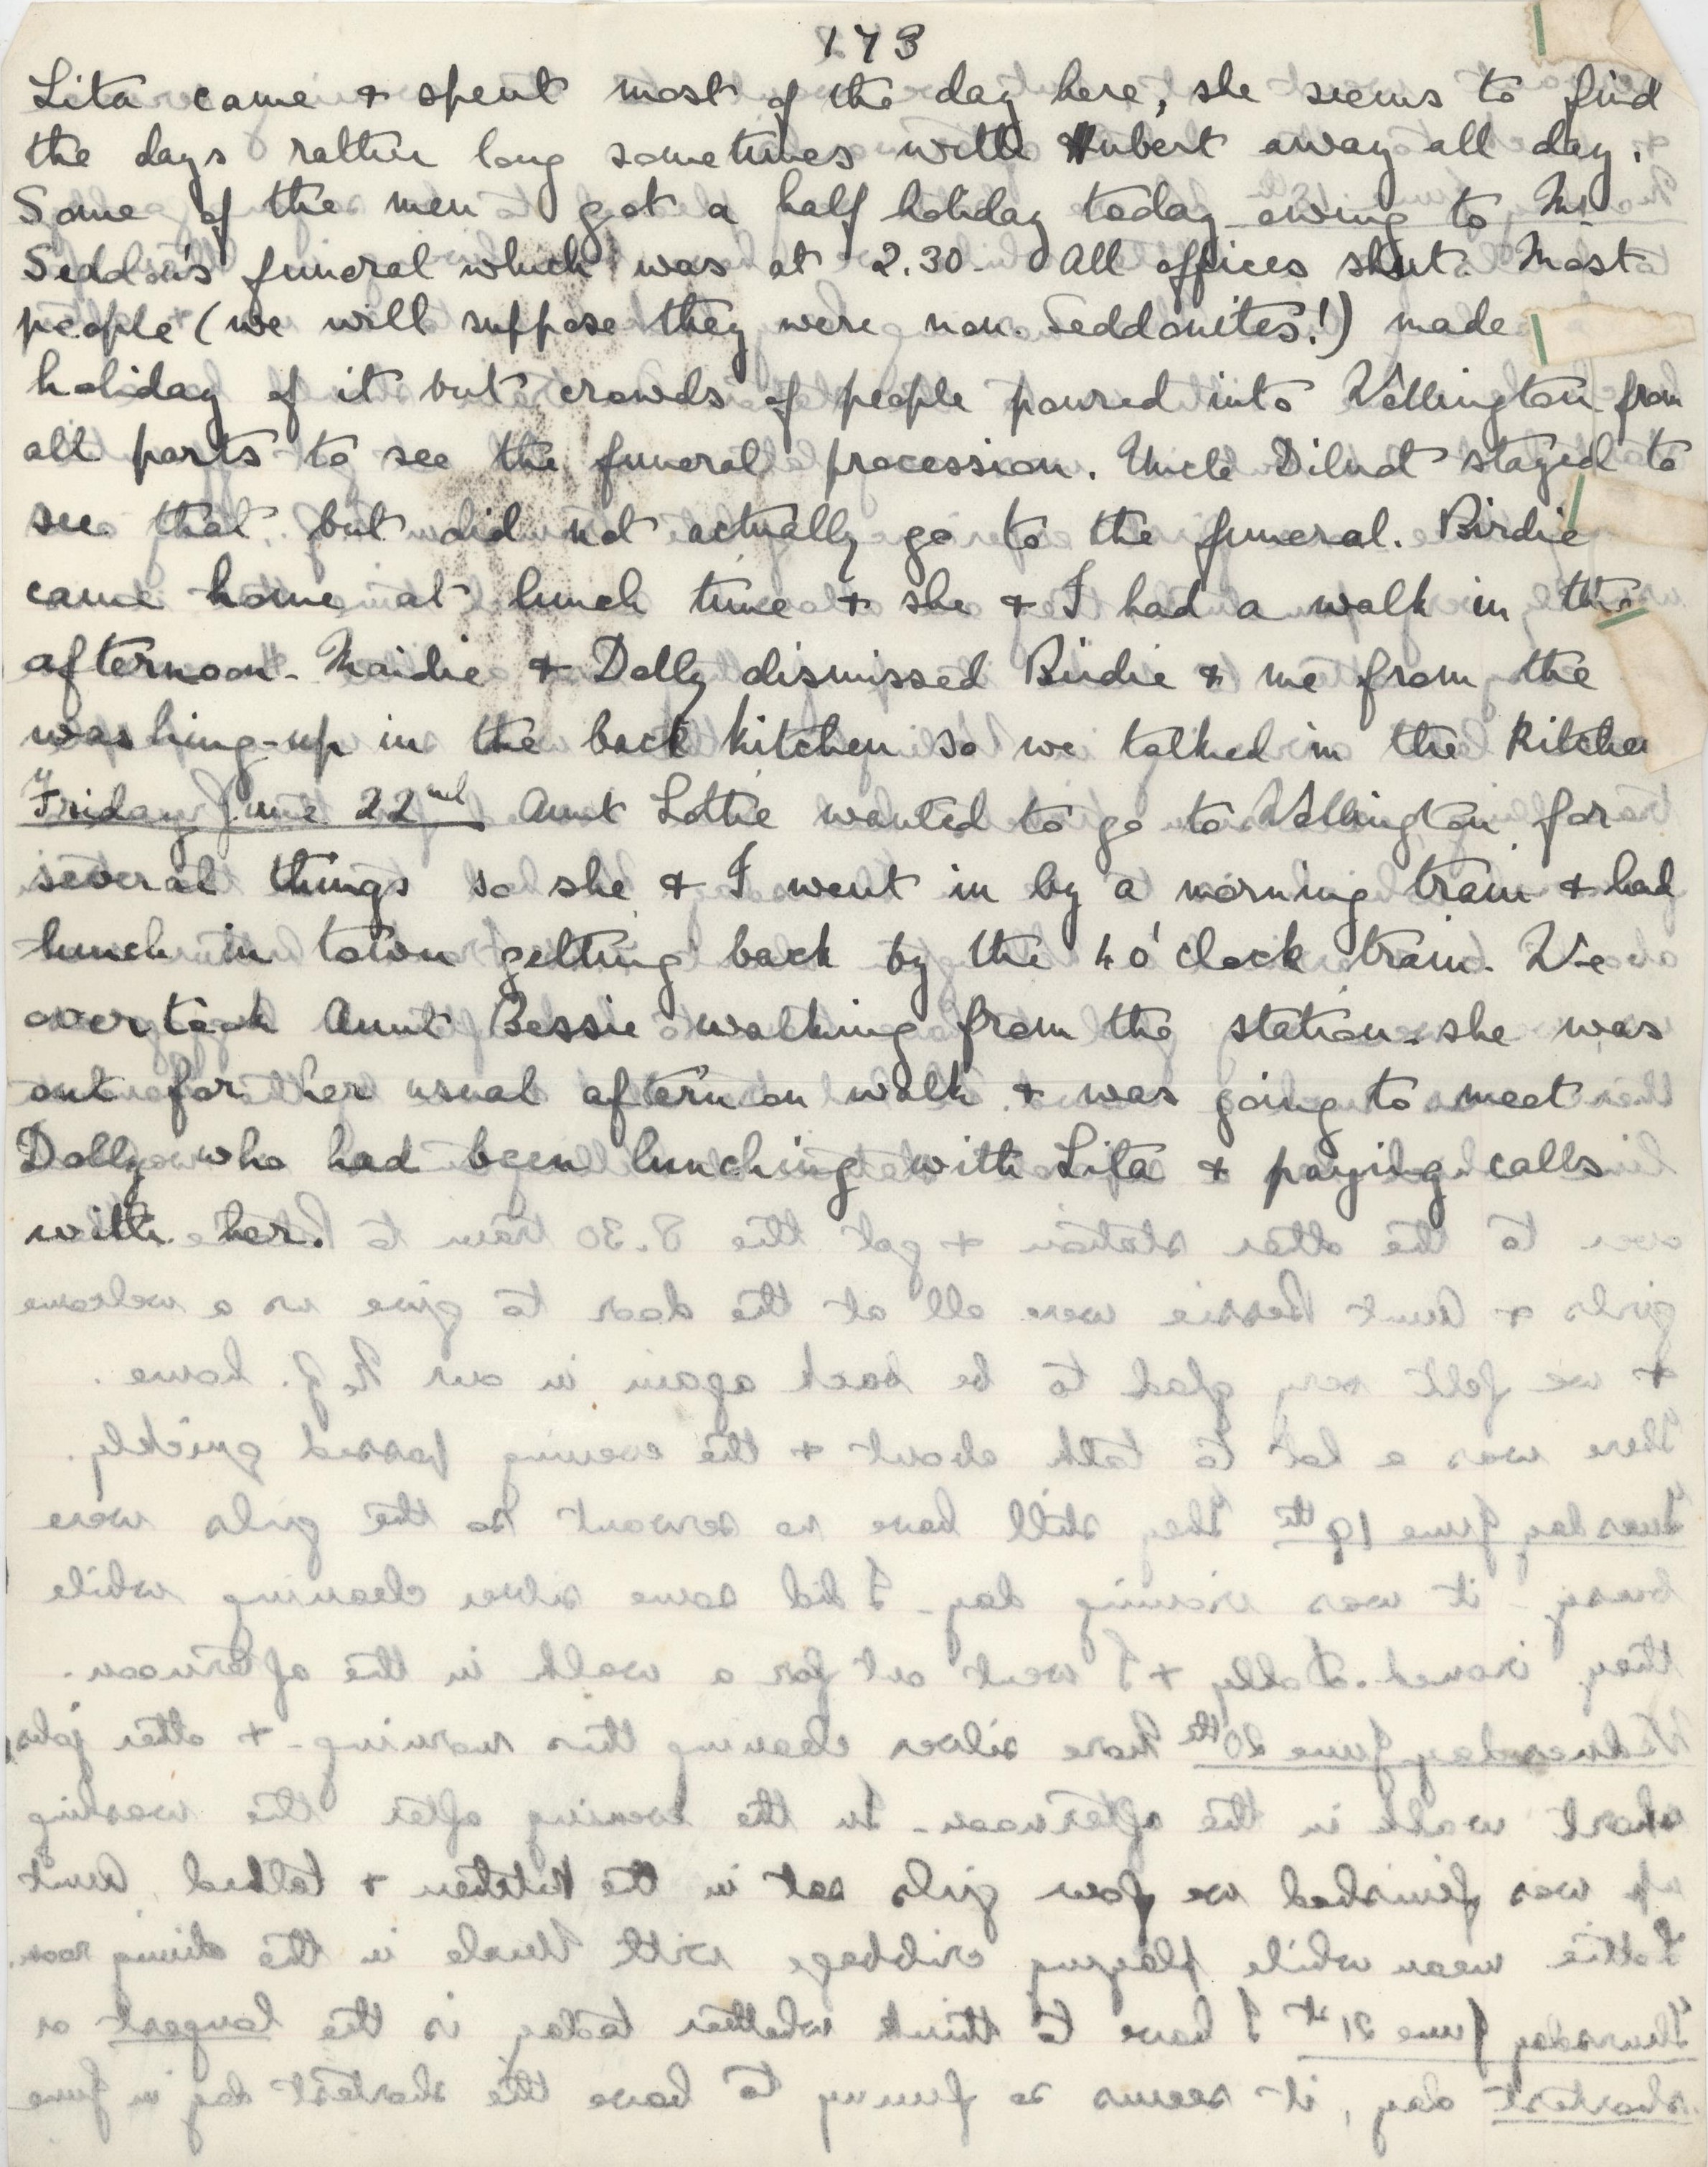 173
Lita came & spent most of the day here, she seems to find
the days rather long sometimes with Hubert away all day.
Some of the men got a half holiday today owing to Mr
Seddon's funeral which was at 2.30. All offices shut. Most
people (we will suppose they were non. Seddonites!) made
holiday of it but crowds of people poured into Wellington from
all parts to see the funeral procession. Uncle Dilnot stayed to
see that but did not actually go to the funeral. Birdie
came home at lunch time & she & I had a walk in the
afternoon. Maidie & Dolly dismissed Birdie & me from the
washing-up in the back kitchen so we talked in the kitchen
Friday June 22nd Aunt Lottie wanted to go to Wellington for
several things so she & I went in by a morning train & had
lunch in town getting back by the 4 o'clock train. We
overtook Aunt Bessie walking from the station. she was
out for her usual afternoon walk & was going to meet
Dolly who had been lunching with Lita & paying calls
with her.